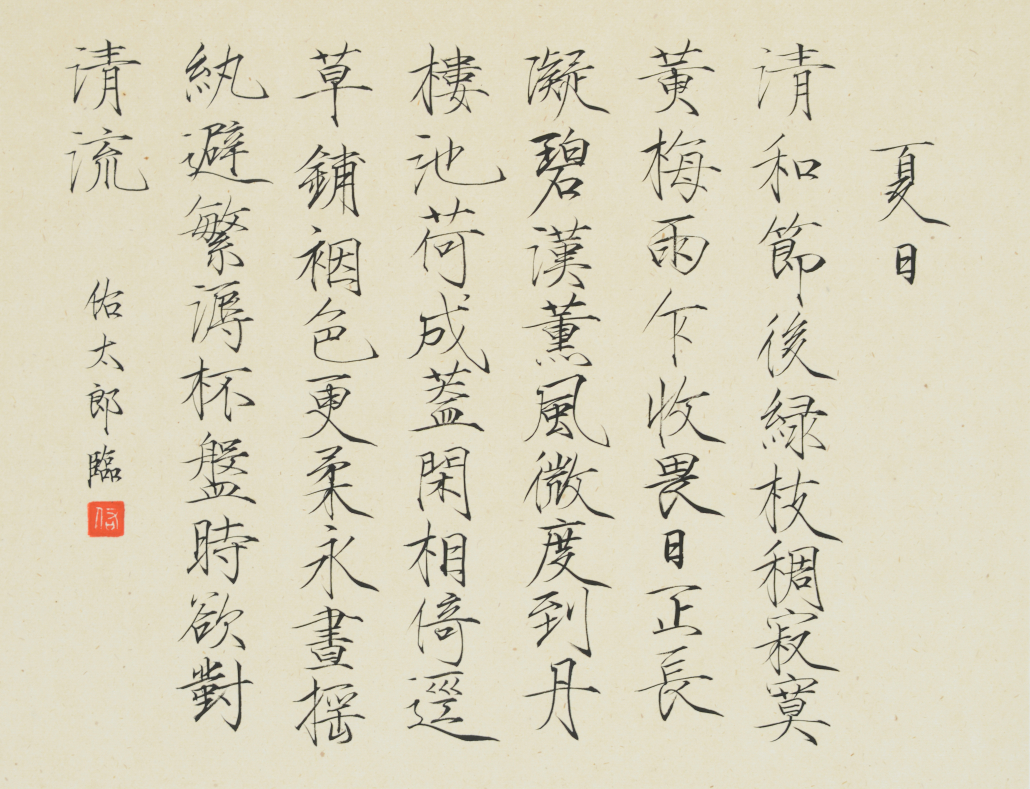 夏日
清和節後緑枝稠寂寞
黄梅雨乍收畏日正長
凝碧漢薫風微度到丹
樓池荷成蓋閑相倚逕
草鋪裀色更柔永晝揺
紈避繁溽杯盤時欲對
清流
佑太郎臨
佑